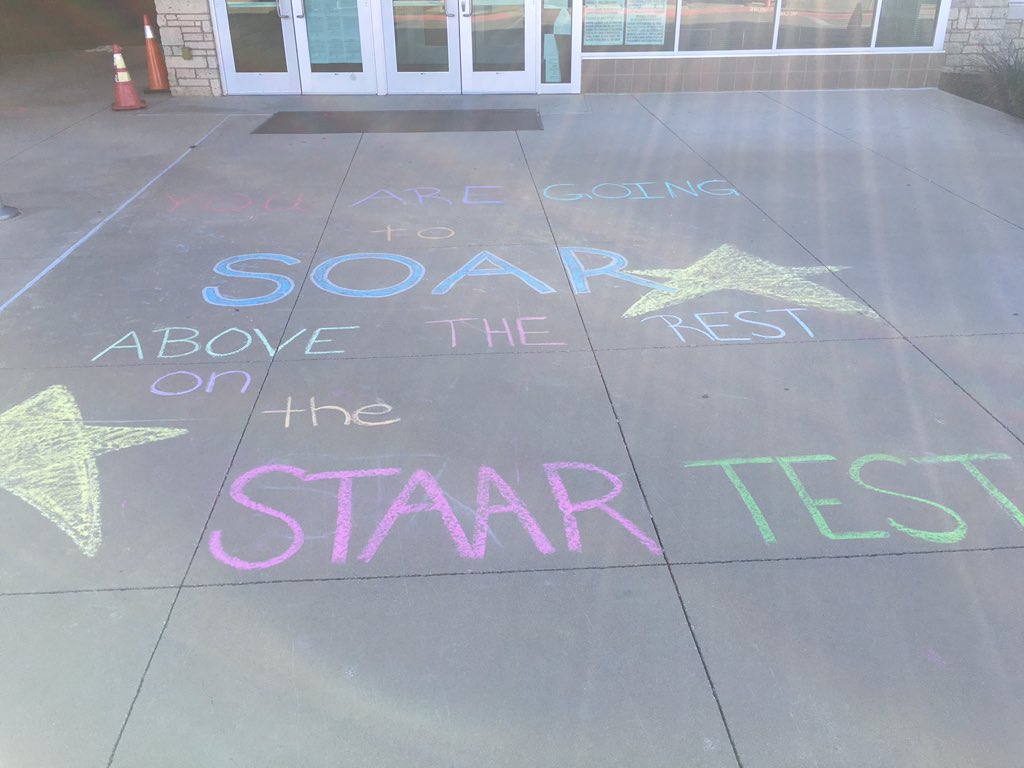 YOU ARE GOING
to
SOAR
ABOVE THE REST
on
the
STAAR TEST